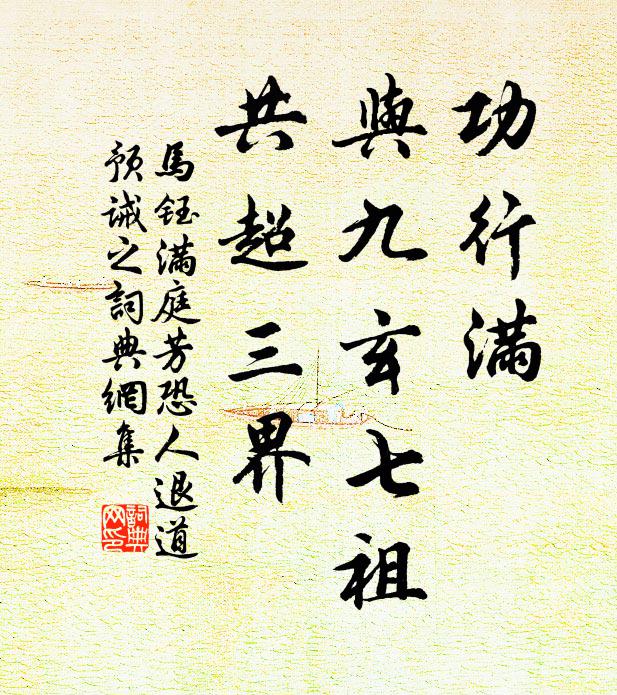 功行滿
與九玄七祖
共超三界
馬鈺滿庭芳恐人退道
預誡之詞典網集
詞典
网印